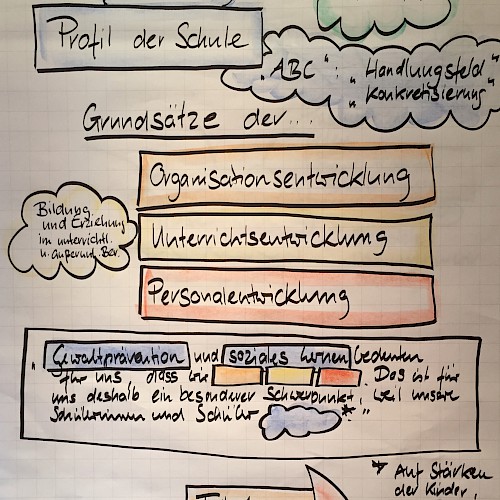 Profil der Schule
"ABC": "Handlungsfeld"
"Konkretisierung"
Grundsätze der...
Organisationsentwicklung
Bildung
und Erziehung
im unterrichtl.
u. außerunt. Ber.
Unterrichtsentwicklung
Personalentwicklung
"Gewaltprävention und soziales Lernen bedeuten
für uns dass wir . Das ist für
uns deshalb ein besonderer Schwerpunkt, weil unsere
Schülerinnen und Schüler *"
* Auf Stärken
der Kinder,